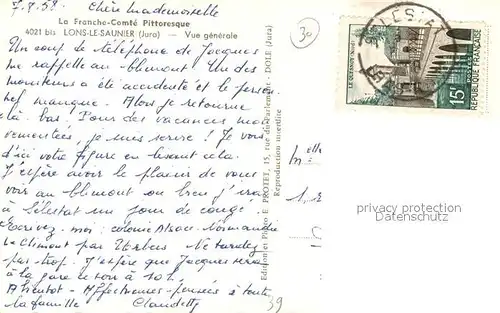 7.9.58. Chère Mademoiselle
La Franche-Comté Pittoresque
4021 bis LONS-LE-SAUNIER (Jura) — Vue générale
Un coup de téléphone de Jacques
me rappelle au Climont. Un des
moniteurs a été accidenté et le person-
nel manque. Alors je retourne
là-bas. Pour des vacances mou-
vementées, je suis servie ! Je vois
d'ici votre figure en lisant cela.
J'espère avoir le plaisir de vous
voir au Climont ou bien j'irai
à Sélestat un jour de congé.
Ecrivez-moi : colonie Alsace-Normandie
Le Climont par Urbeis Ne tardez
pas trop. J'espère que Jacques sera
à la gare ce soir à 20h.
A bientôt - Affectueuses pensées à toute
la famille Claudette
Edition et Photo E. PROTET, 15, rue du Parlement - DOLE (Jura)
Reproduction interdite
30
LE QUESNOY-NORD
15F
POSTES
REPUBLIQUE FRANÇAISE
elle
39
privacy protection
Datenschutz